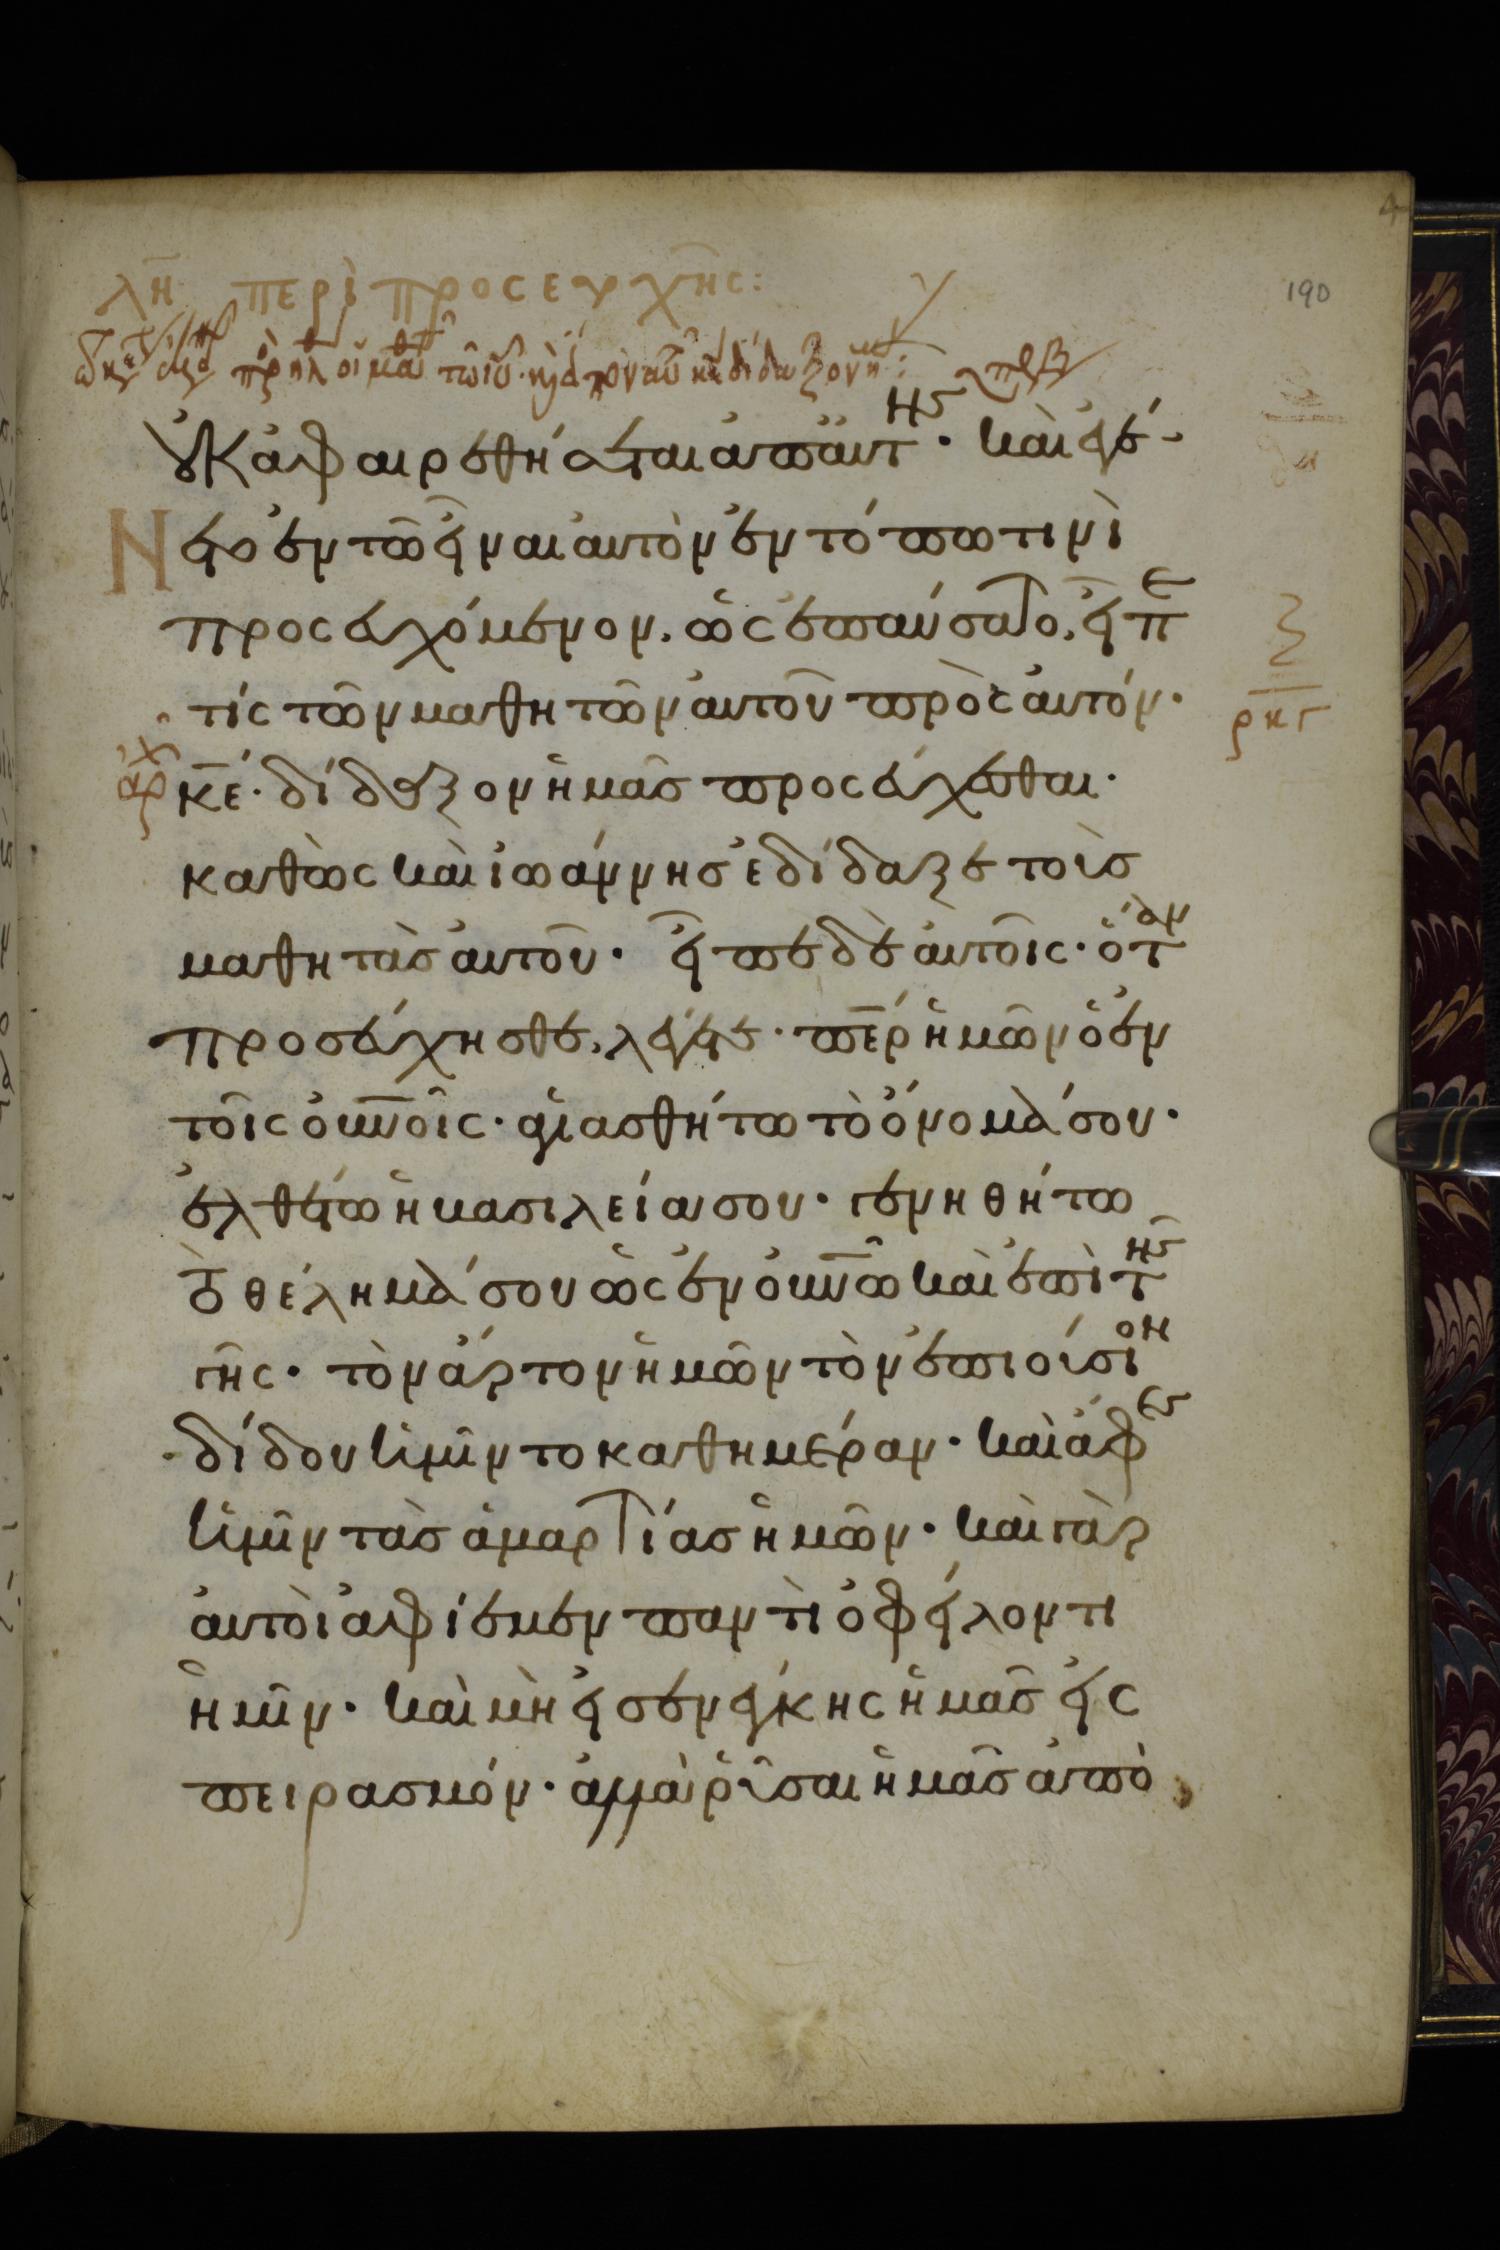 190
λη περὶ προσευχῆς:
οὐκ ἀφαιρεθήσεται ἀπ αὐτῆς· καὶ ἐγέ-
νετο ἐν τῶ εἶναι αὐτὸν ἐν τόπω τινὶ
προσευχόμενον, ὡς ἐπαύσατο, εἶπέ
τίς τῶν μαθητῶν αὐτοῦ πρὸς αὐτόν·
κ̅ε̅· δίδαξον ἡμᾶς προσεύχεσθαι·
καθὼς καὶ ἰωάννης ἐδίδαξε τοὺς
μαθητὰς αὐτοῦ· εἶπε δὲ αὐτοῖς· ὅταν
προσεύχησθε, λέγετε· π̅ε̅ρ̅ ἡμῶν ὁ ἐν
τοῖς ο̅υ̅ν̅οῖς· ἁγιασθήτω τὸ ὄνομά σου·
ἐλθέτω ἡ βασιλεία σου· γενηθήτω
τὸ θέλημά σου ὡς ἐν ο̅υ̅ν̅ῶ καὶ ἐπὶ τῆς
γῆς· τὸν ἄρτον ἡμῶν τὸν ἐπιούσιον
δίδου ἡμῖν το καθημέραν· καὶ ἄφες
ἡμῖν τὰς ἁμαρτίας ἡμῶν· καὶ γὰρ
αὐτοὶ ἀφίεμεν παντὶ ὀφείλοντι
ἡμῖν· καὶ μὴ εἰσενέγκης ἡμᾶς εἰς
πειρασμόν· ἀλλὰ ῥῦσαι ἡμᾶς ἀπὸ
ρκγ